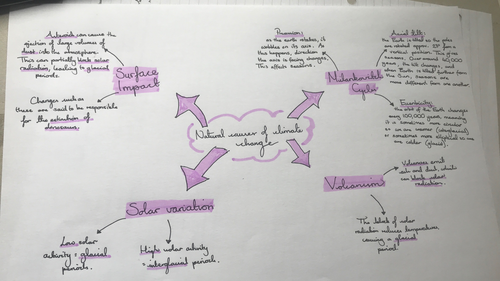 Asteroids can cause the
ejection of large volumes of
dust into the atmosphere.
This can partially block solar
radiation, leading to glacial
periods.
Surface
Impact
Changes such as
these are said to be responsible
for the extinction of
dinosaurs.
Precession:
as the earth rotates, it
wobbles on its axis. As
this happens, direction
the axis is facing changes.
This affects seasons.
Axial tilt:
the Earth is tilted so the poles
are rotated approx. 23° from a
vertical position. This is no
Over around 40,000
years, the tilt changes, and
when Earth is tilted further from
the Sun, seasons are
more different from one another
Milankovitch
Cycles
Eccentricity:
the orbit of the Earth changes
every 100,000 years, meaning
it is sometimes more circular
so we are warmer (interglacial)
or sometimes more elliptical so we
are colder (glacial)
Natural causes of climate
change
Solar variation
Low solar
activity = glacial
periods.
High solar activity
= interglacial periods.
Volcanism
Volcanoes emit
ash and dust, which
can block solar
radiation.
The block of solar
radiation reduces temperature,
causing a glacial
period.